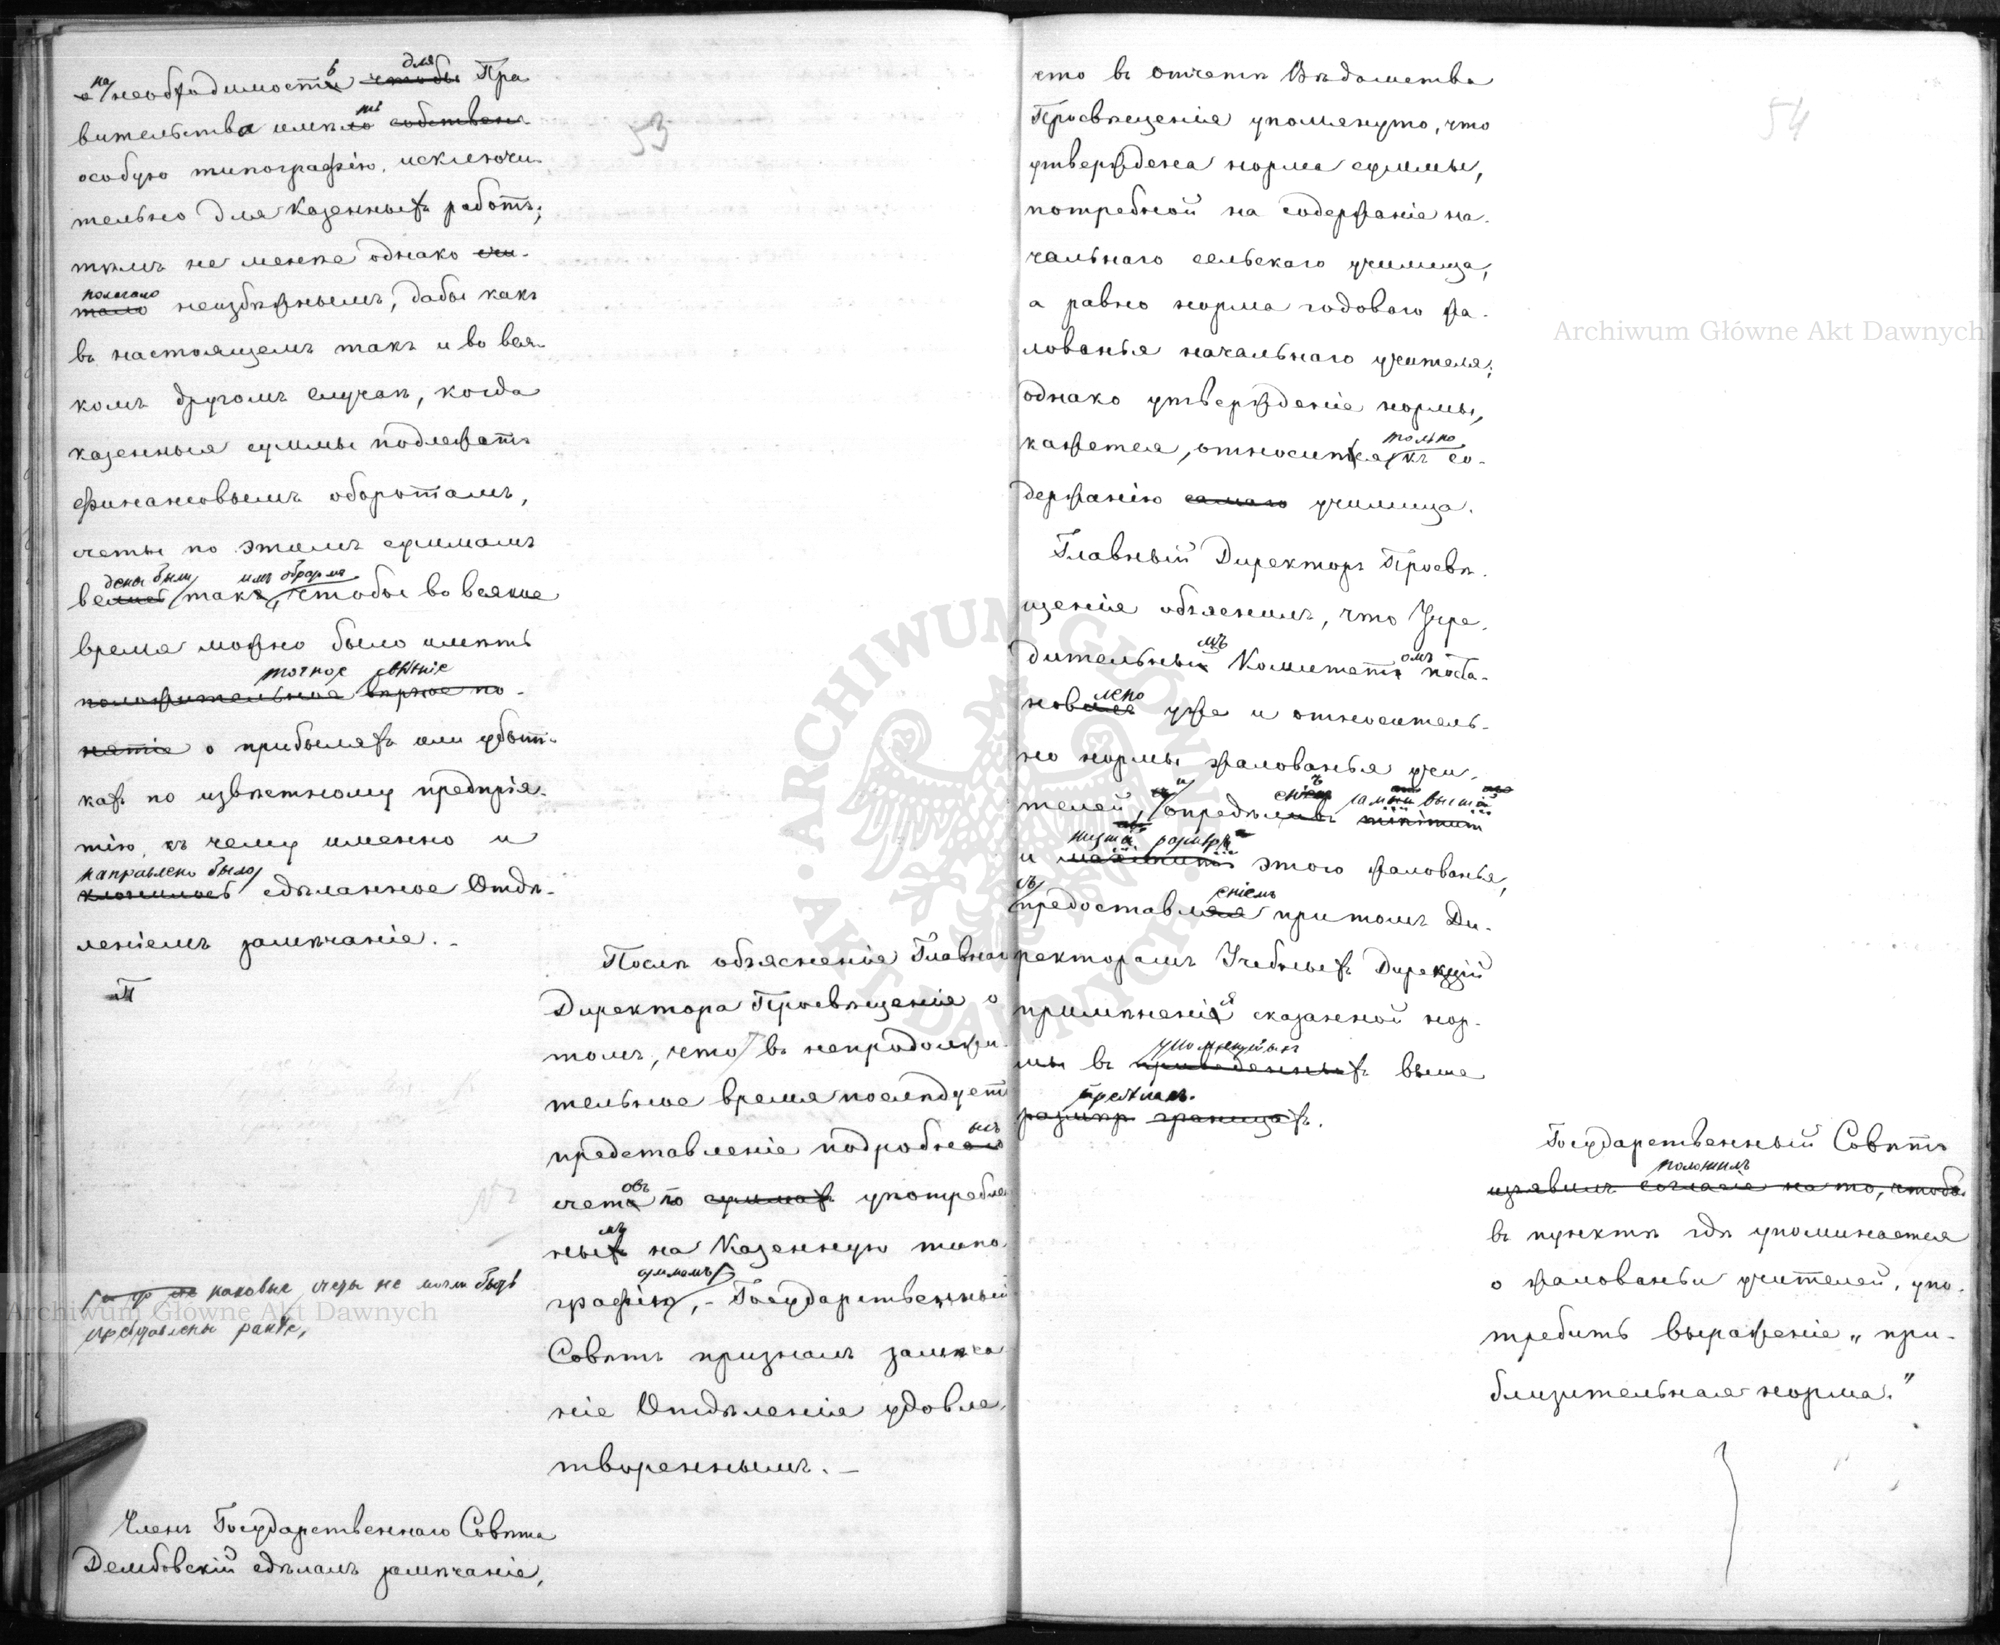 на необходимость для Пра
вительства имѣть
особую типографію, исключи-
тельно для казенныхъ работъ;
тѣмъ не менѣе однако
полагало неизбѣжнымъ, дабы какъ
въ настоящемъ такъ и во вся-
комъ другомъ случаѣ, когда
казенныя суммы подлежатъ
финансовымъ оборотамъ,
счеты по этимъ суммамъ
ведены были такимъ образомъ, чтобы во всякое
время можно было имѣть
точное
о прибыляхъ или убыт-
кахъ по извѣстному предпрія-
тію, къ чему именно и
направлено было сдѣланное Отдѣ-
леніемъ замѣчаніе. -
53
Послѣ объясненія Главнаго
Директора Просвѣщенія о
томъ, что въ непродолжи-
тельное время послѣдуетъ
представленіе подробныхъ
счетовъ по употреблен
нымъ на Казенную типо
графію суммамъ, - Государственный
Совѣтъ призналъ замѣча
ніе Отдѣленія удовле-
творенныمъ. -
каковые счеты не могли быть
представлены ранѣе,
Членъ Государственнаго Совѣта
Дембовскій сдѣлалъ замѣчаніе,
54
что въ отчетѣ Вѣдомства
Просвѣщенія упомянуто, что
утверждена норма суммы,
потребной на содержаніе на-
чальнаго сельскаго училища,
а равно норма годоваго жа-
лованья начальнаго учителя;
однако утвержденіе нормы,
кажется, относится только къ со-
держанію самаго училища.
Главный Директоръ Просвѣ-
щенія объяснилъ, что Учре-
дительнымъ Комитетомъ поста-
новлено уже и относитель-
но нормы жалованья учи-
телей, и опредѣленъ самый высшій
и низшій размѣръ этого жалованья,
съ предоставленіемъ притомъ Ди-
ректорамъ Учебныхъ Дирекцій
примѣненія сказанной нор-
мы въ упомянутыхъ выше
предѣлахъ.
Государственный Совѣтъ
положилъ
изъявилъ согласіе на то, чтобы
въ пунктѣ гдѣ упоминается
о жалованьи учителей, упо-
требить выраженіе „при-
близительная норма."
Archiwum Główne Akt Dawnych
Archiwum Główne Akt Dawnych
· ARCHIWUM GŁÓWNE · AKT DAWNYCH